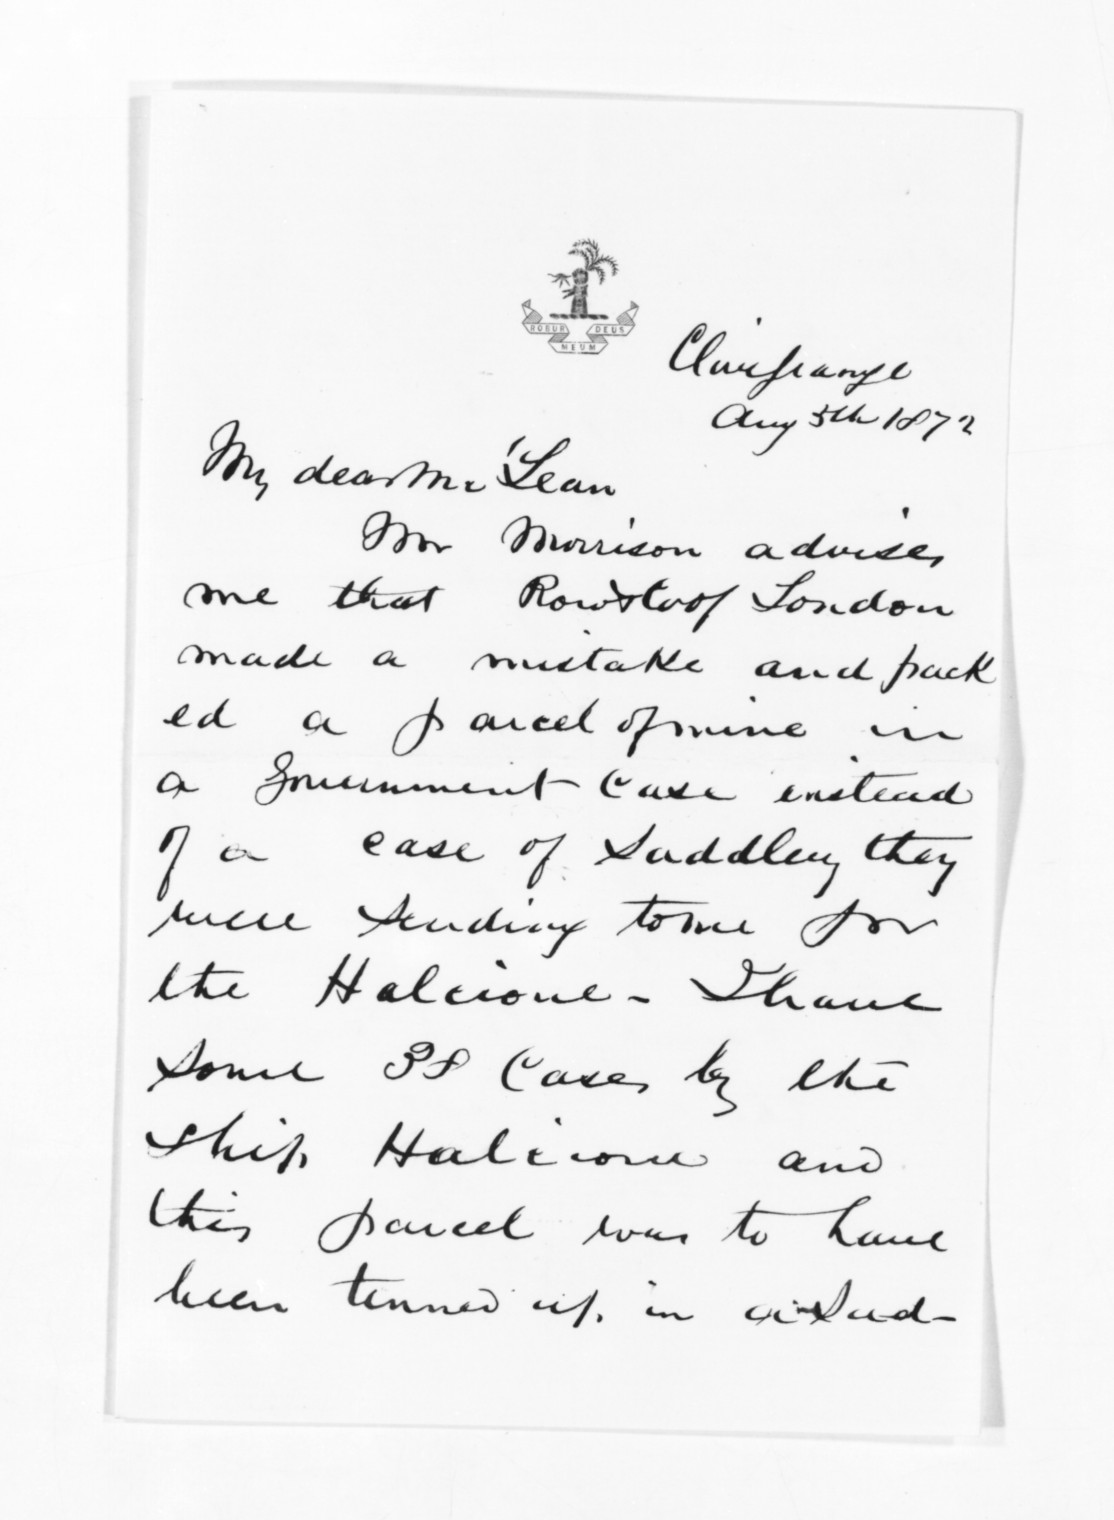 ROBUR DEUS
MEUM
Clive grange
Aug 5th 1872
My dear Mc'Lean
Mr Morrison advises
me that Row & Co of London
made a mistake and pack
ed a parcel of mine in
a Government Case instead
of a case of Saddlery they
were sending to me for
the Halcione - I have
some 38 Cases by the
ship Halcione and
this parcel was to have
been tinned up in a Sad-